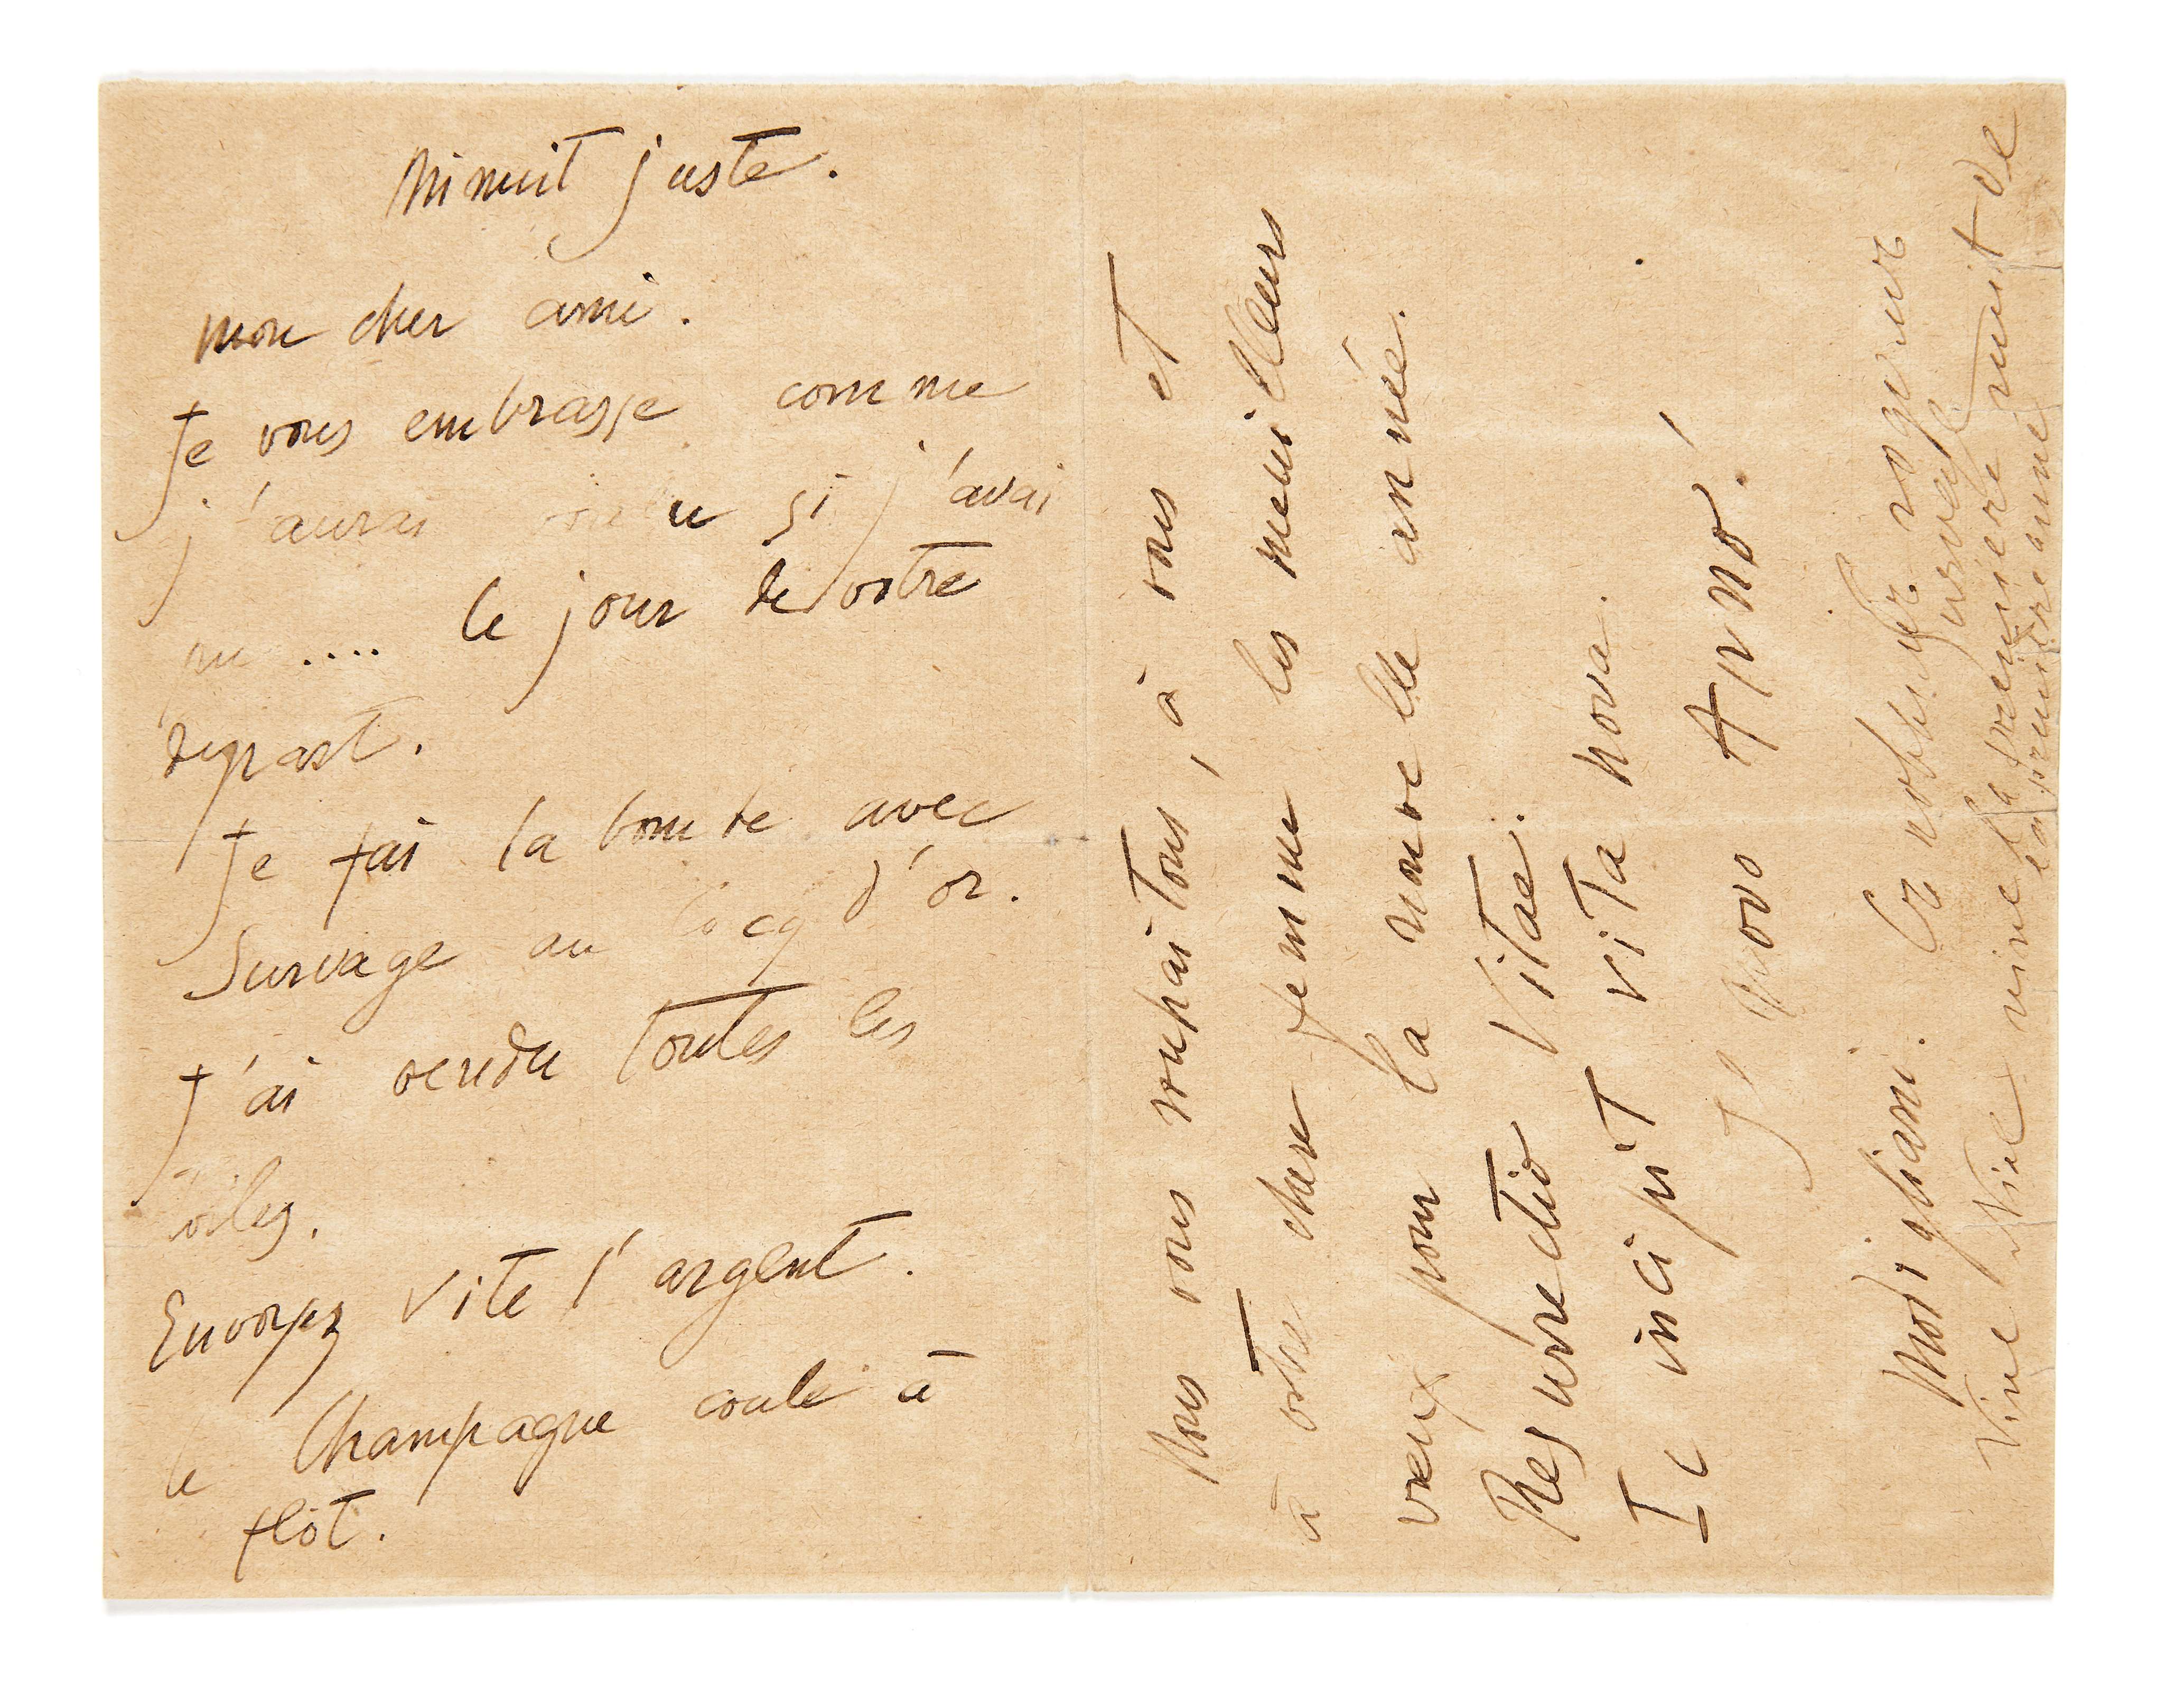 Minuit juste.
mon cher ami.
Je vous embrasse comme
j'aurai voulu si j'avai
pu .... le jour de votre
depart.
Je fai la bombe avec
Survage au Cocq d'or.
J'ai vendu toutes les
toiles.
Envoyez vite l'argent.
le Champagne coule à
flot.
Nous vous souhaitons, à vous et
à votre chere femme les meuilleurs
vœux pour la nouvelle année.
Resurrectio Vitae.
Ic incipit vita nova.
Il Novo Anno!
Modigliani.
Survage
Vive Nice vive la première nuit de
la première année